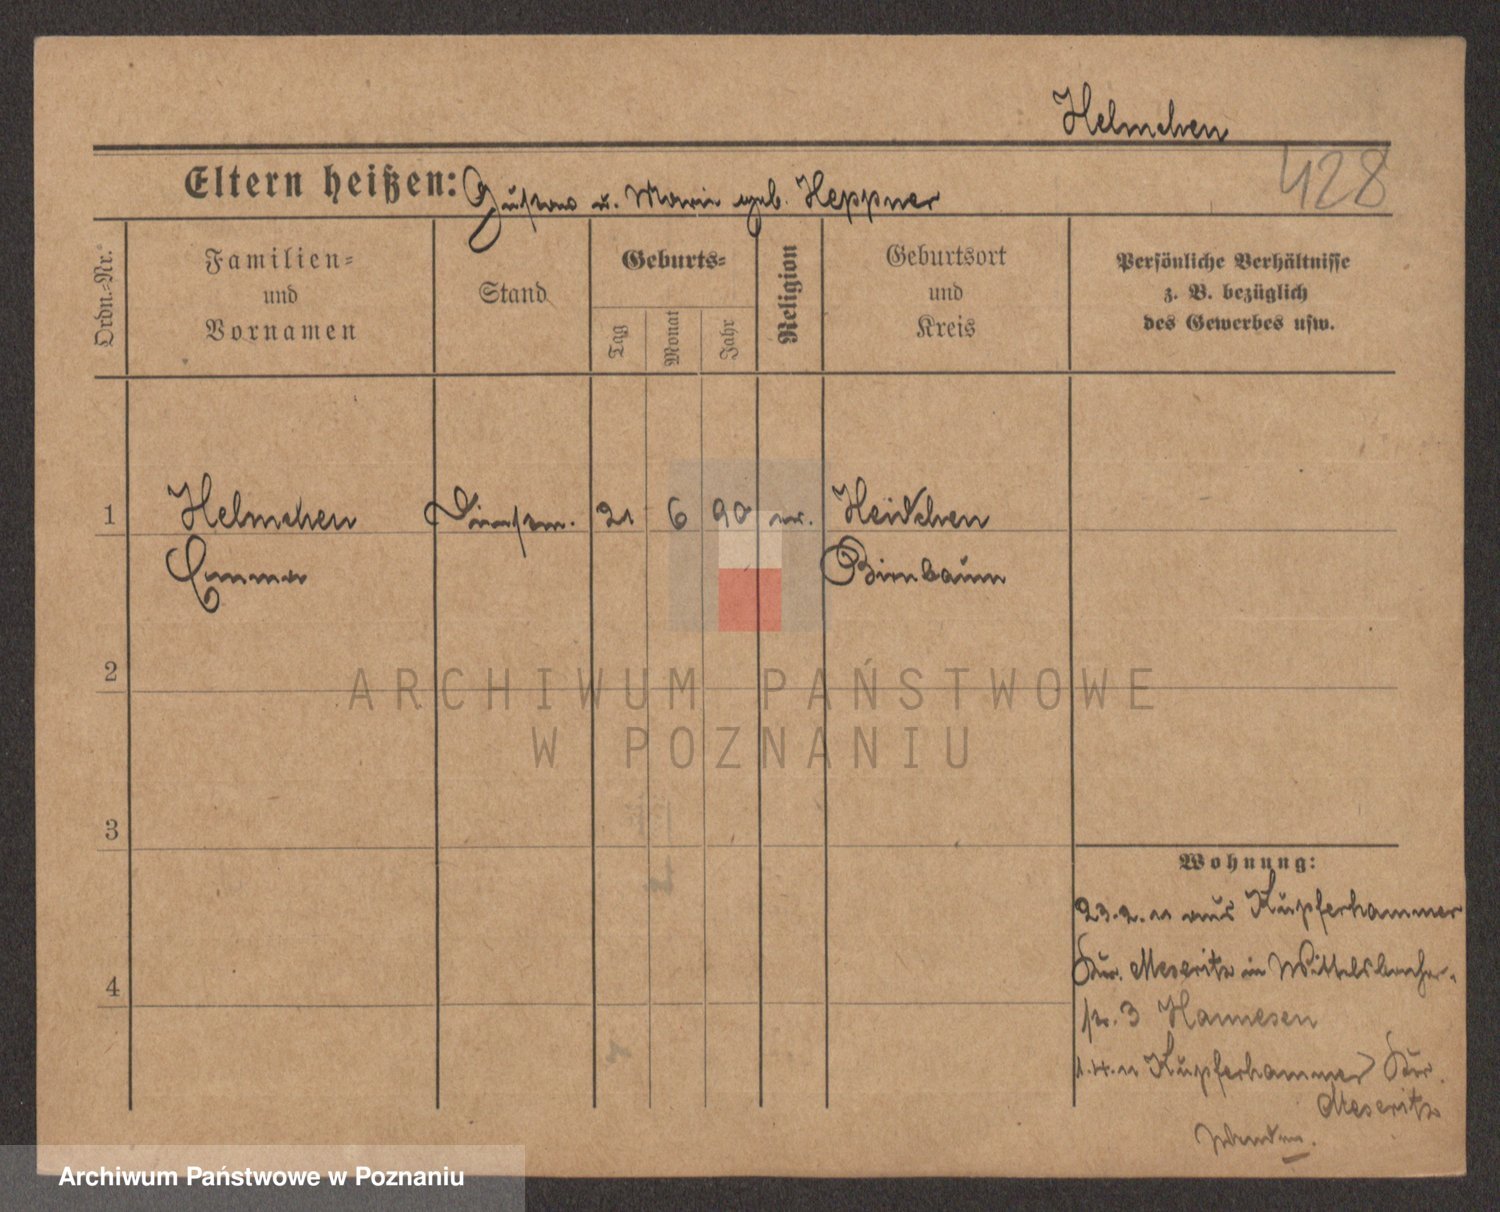 Helmchen
428
Eltern heißen: Gustav u. Marie geb. Heppner
Ordn.-Nr.
Familien-
und
Vornamen
Stand
Geburts-
Tag
Monat
Jahr
Religion
Geburtsort
und
Kreis
Persönliche Verhältnisse
z. B. bezüglich
des Gewerbes usw.
1 Helmchen Dienstm. 21 6 90 ev. Heidchen
Emma Birnbaum
2
3
4
Wohnung:
23.2.11 aus Kupferhammer
Kr. Meseritz in Wittelsbacher-
str. 3 Hannesen
1.4.11 Kupferhammer Kr.
Meseritz
wenden.
ARCHIWUM PAŃSTWOWE
W POZNANIU
Archiwum Państwowe w Poznaniu